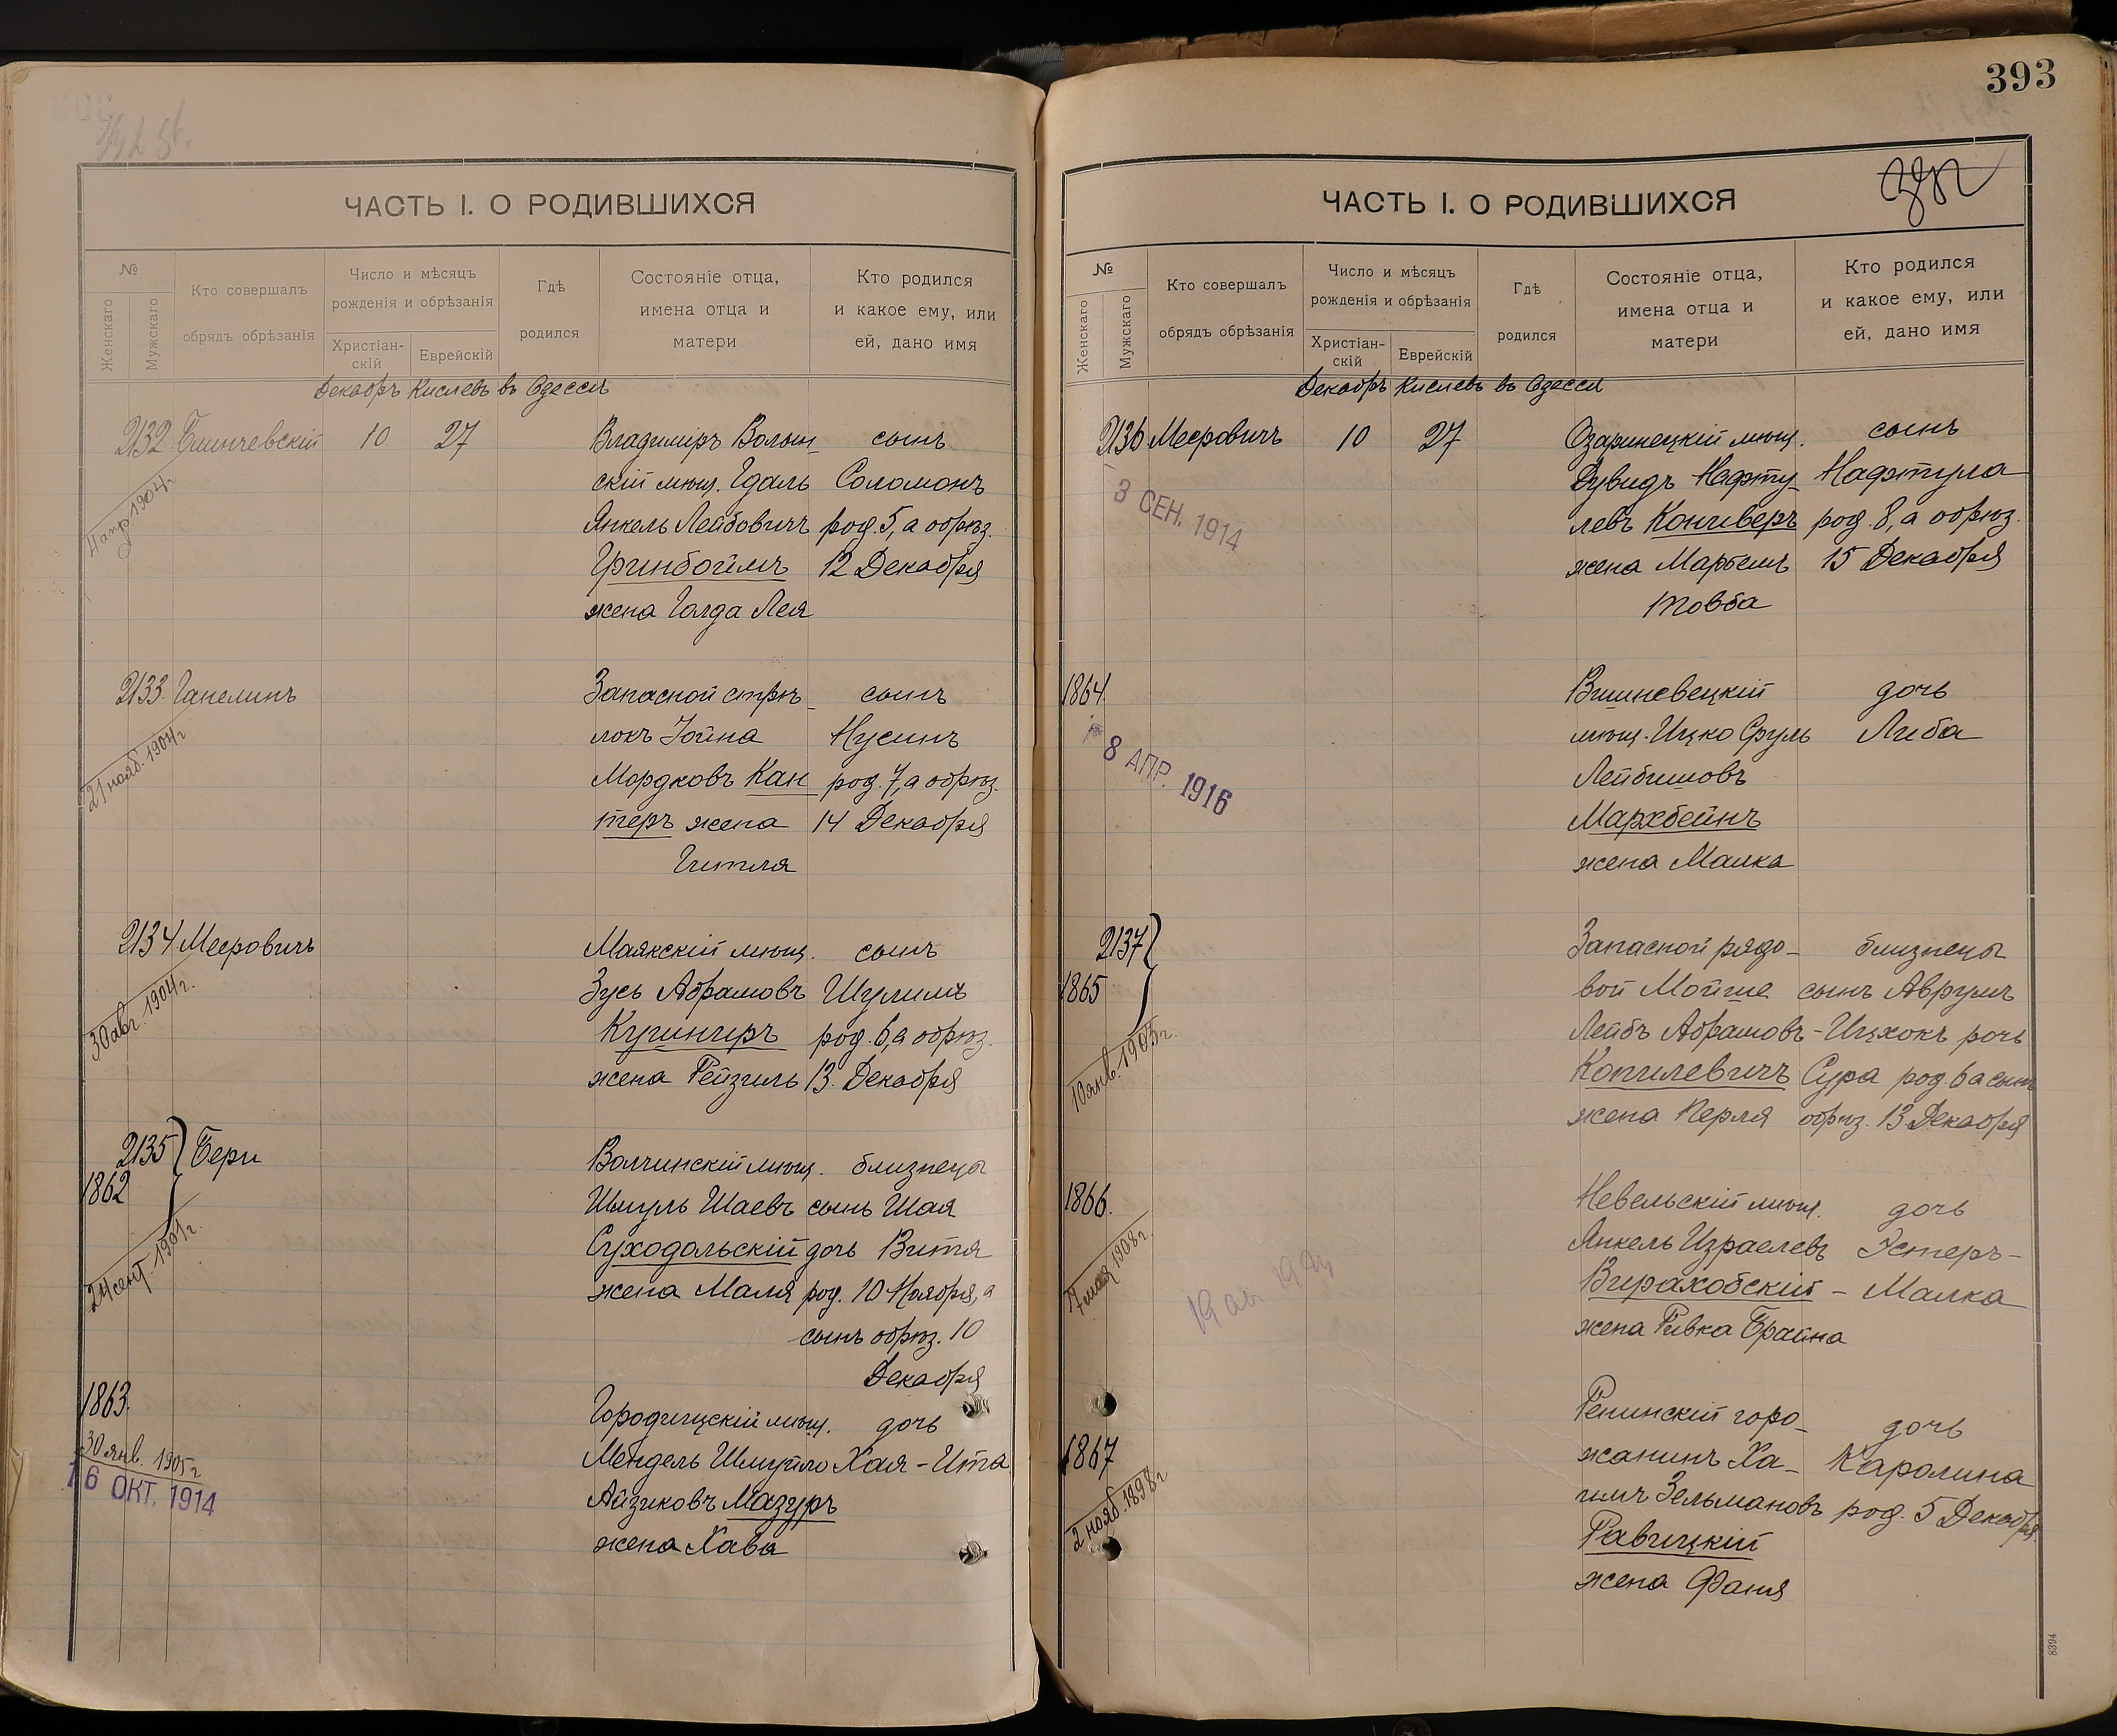 ЧАСТЬ I. О РОДИВШИХСЯ
№
Женскаго
Мужскаго
Кто совершалъ
обрядъ обрѣзанія
Число и мѣсяцъ
рожденія и обрѣзанія
Христіан-
скій
Еврейскій
Гдѣ
родился
Состояніе отца,
имена отца и
матери
Кто родился
и какое ему, или
ей, дано имя
Декабрь Кислевъ въ Одессѣ
2132 10 27 Владиміръ Волын- сынъ
скій мѣщ. Гдаль Соломонъ
Янкель Лейбовичъ род. 5, а обрѣз.
Гринбоймъ 12 Декабря
жена Голда Лея
4 апр. 1904 г.
2133. Ганелинъ Запасной стрѣ- сынъ
локъ Іойна Нусинъ
Мордковъ Кан род. 7, а обрѣз.
теръ жена 14 Декабря
Гитля
21 нояб. 1904 г.
2134 Мееровичъ Маякскій мѣщ. сынъ
Зусь Абрамовъ Шулимъ
Кушниръ род. 6, а обрѣз.
жена Рейзель 13. Декабря
30 авг. 1904 г.
2135 Бери Волчинскій мѣщ. близнецы
1862 Шмуль Шаевъ сынъ Шая
Суходольскій дочь Витя
жена Маля род. 10 Ноября, а
сынъ обрѣз. 10
Декабря
24 сент. 1901 г.
1863. Городищскій мѣщ. дочь
Мендель Шмуйло Хая-Ита
Айзиковъ Мазуръ
жена Хава
30 янв. 1905 г.
16 ОКТ. 1914
393
ЧАСТЬ I. О РОДИВШИХСЯ
№
Женскаго
Мужскаго
Кто совершалъ
обрядъ обрѣзанія
Число и мѣсяцъ
рожденія и обрѣзанія
Христіан-
скій
Еврейскій
Гдѣ
родился
Состояніе отца,
имена отца и
матери
Кто родился
и какое ему, или
ей, дано имя
Декабрь Кислевъ въ Одессѣ
2136 Мееровичъ 10 27 Озаринецкій мѣщ. сынъ
Дувидъ Нафту- Нафтула
левъ Конгиверъ род. 8, а обрѣз.
жена Марьемъ 15 Декабря
Товба
3 СЕН. 1914
1864. Вишневецкій дочь
мѣщ. Ицко Сруль Либа
Лейбишовъ
Мархбейнъ
жена Малка
8 АПР. 1916
2137 Запасной рядо- близнецы
1865 вой Мойше сынъ Аврумъ
Лейбъ Абрамовъ -Ицхокъ дочь
Копилевичъ Сура род. 6 а сынъ
жена Перля обрѣз. 13 Декабря
10 янв. 1905 г.
1866. Невельскій мѣщ. дочь
Янкель Израелевъ Эстеръ-
Вираховскій - Малка
жена Ривка Брайна
17 мая 1908 г.
Ренинскій горо- дочь
1867 жанинъ Ха- Каролина
имъ Зельмановъ род. 5 Декабря
Равицкій
жена Фаня
2 нояб. 1898 г.
8394